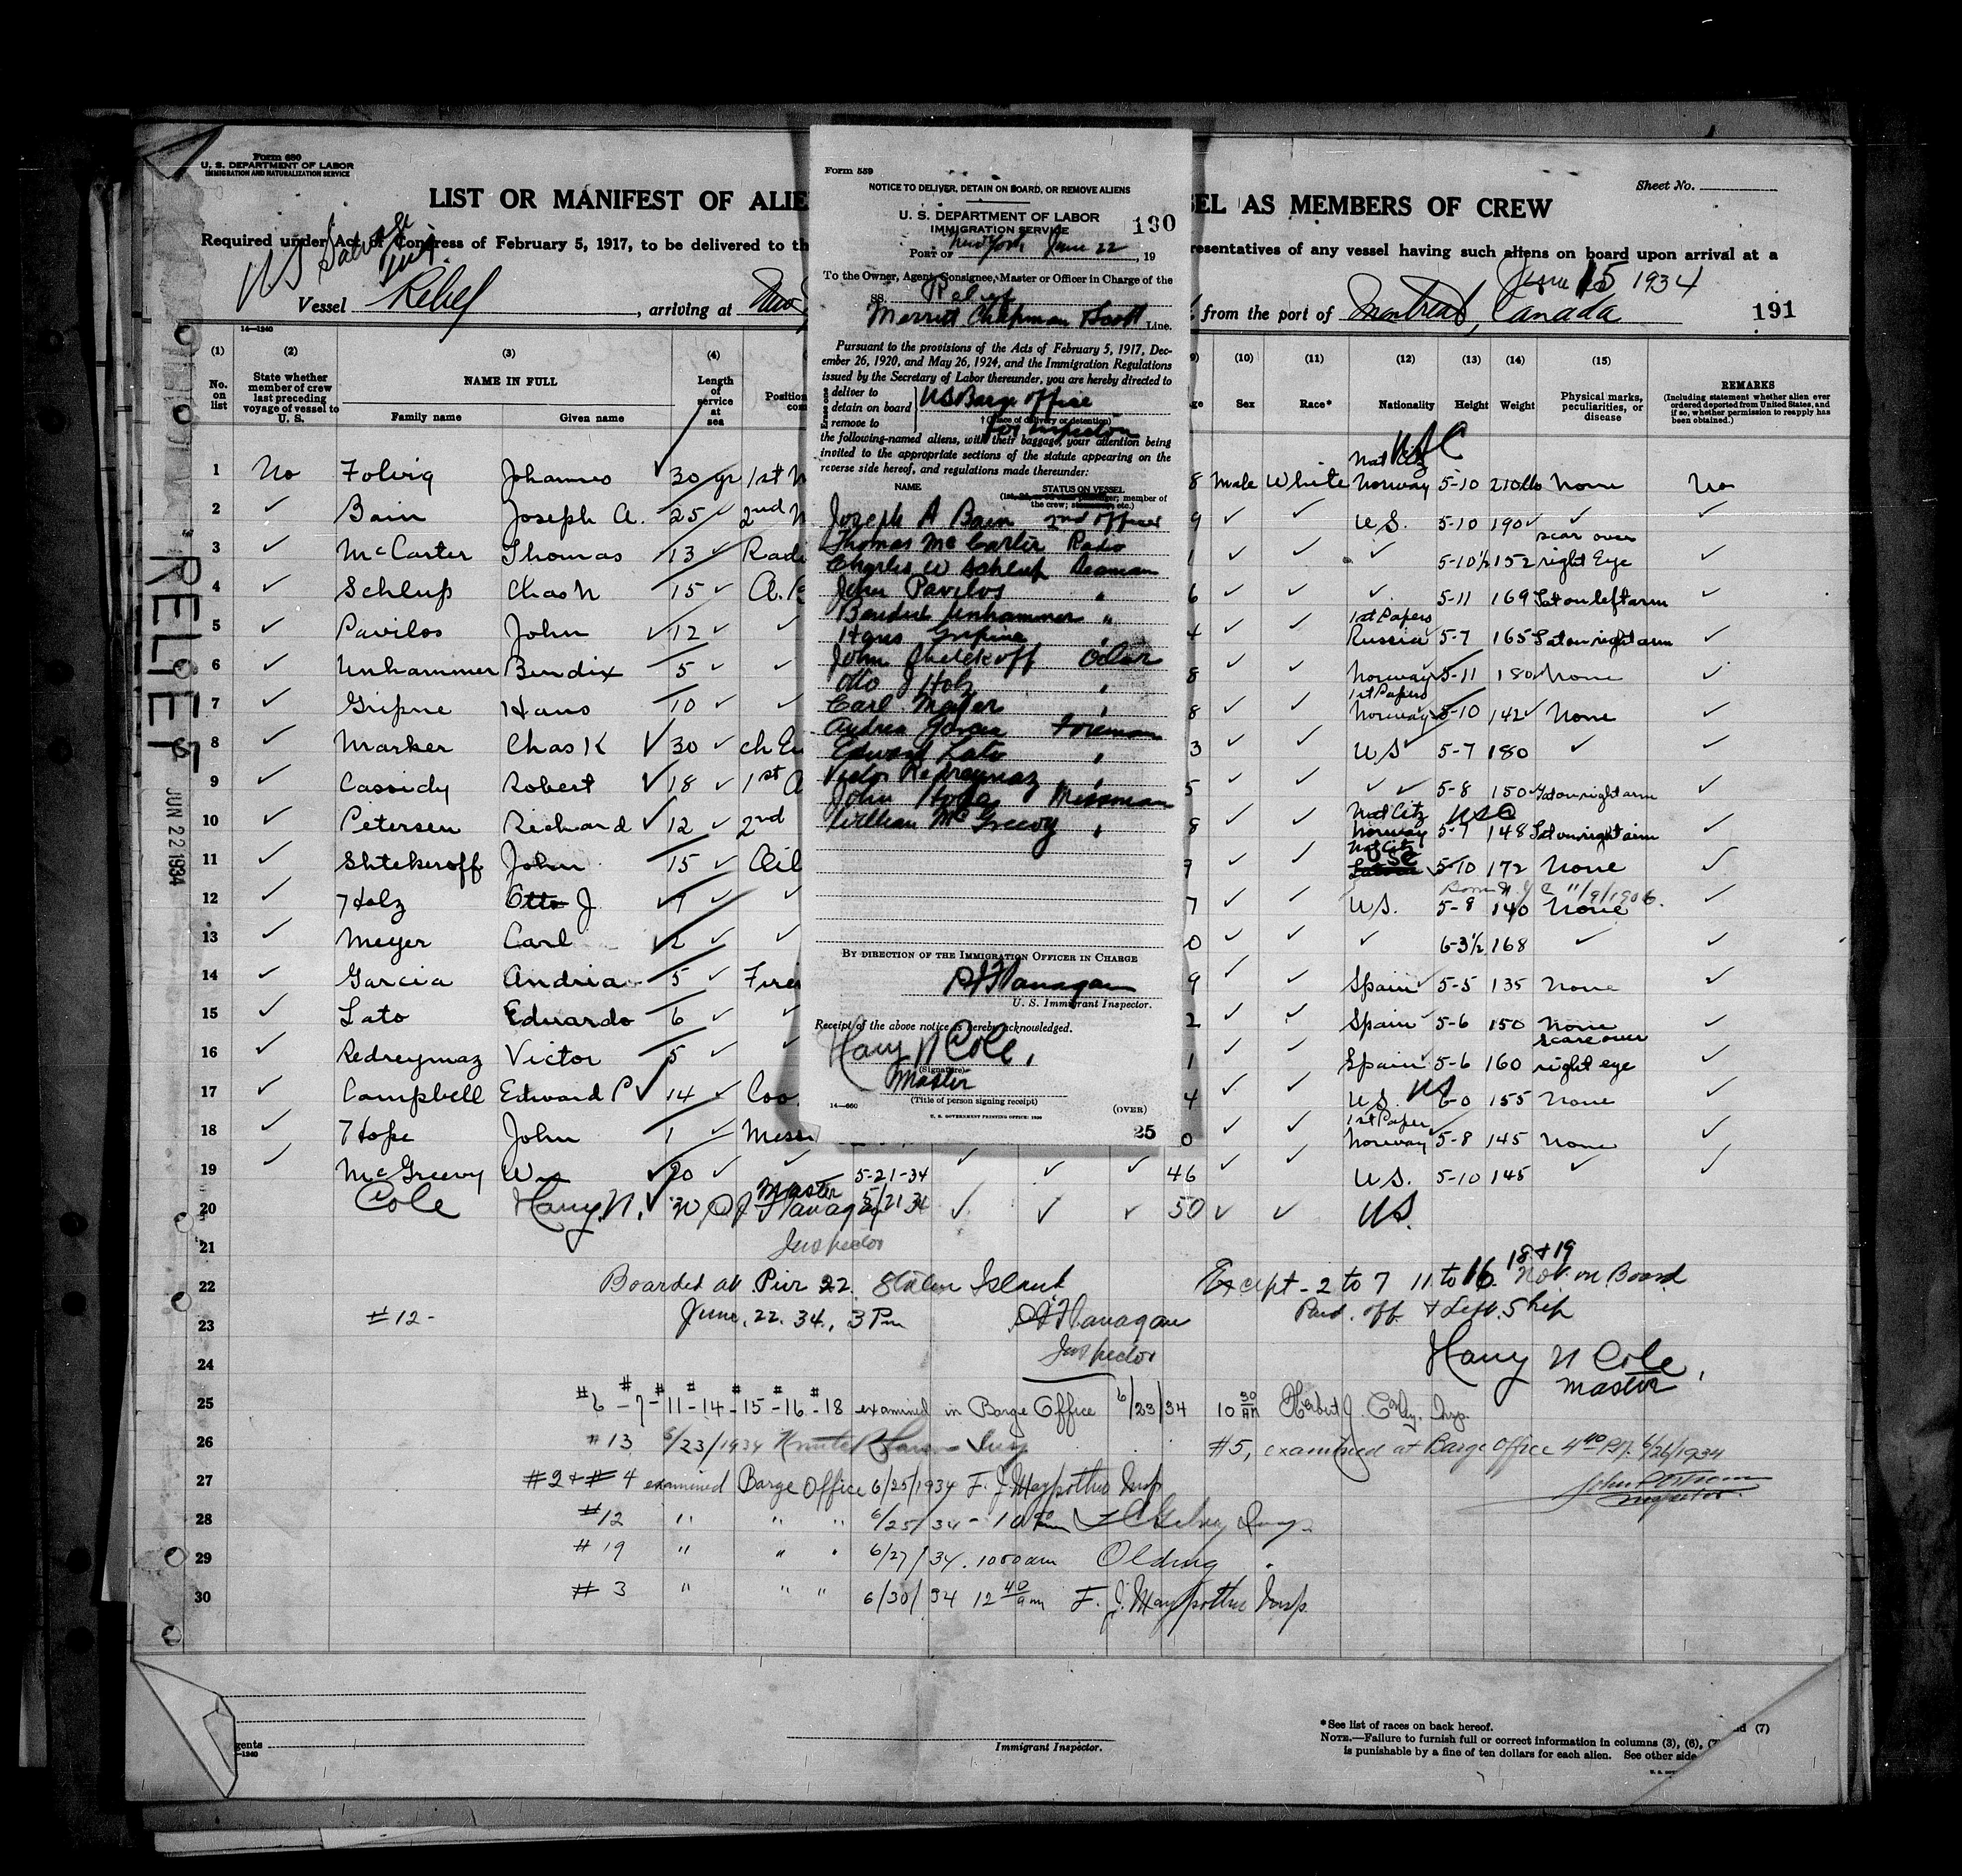 Form 680
U. S. DEPARTMENT OF LABOR
IMMIGRATION AND NATURALIZATION SERVICE
Sheet No.
LIST OR MANIFEST OF ALIE
SEL AS MEMBERS OF CREW
Required under Act of Congress of February 5, 1917, to be delivered to th
resentatives of any vessel having such aliens on board upon arrival at a
US Salvage Tug
June 15 1934
Vessel Relief, arriving at New
from the port of Montreal, Canada
191
14—1240
(1) (2) (3) (4) (10) (11) (12) (13) (14) (15)
No. on list
State whether member of crew last preceding voyage of vessel to U. S.
NAME IN FULL
Family name Given name
Length of service at sea
Position
Sex Race* Nationality Height Weight
Physical marks, peculiarities, or disease
REMARKS
(Including statement whether alien ever ordered deported from United States, and if so, whether permission to reapply has been obtained.)
Form 559
NOTICE TO DELIVER, DETAIN ON BOARD, OR REMOVE ALIENS
U. S. DEPARTMENT OF LABOR
IMMIGRATION SERVICE
190
PORT OF New York June 22, 19
To the Owner, Agent, Consignee, Master or Officer in Charge of the
SS. Relief
Merritt Chapman Scott Line.
Pursuant to the provisions of the Acts of February 5, 1917, Dec-
ember 26, 1920, and May 26, 1924, and the Immigration Regulations
issued by the Secretary of Labor thereunder, you are hereby directed to
deliver to
detain on board
remove to
US Barge office
† (Place of delivery or detention)
for inspection
the following-named aliens, with their baggage, your attention being
invited to the appropriate sections of the statute appearing on the
reverse side hereof, and regulations made thereunder:
NAME STATUS ON VESSEL
member of the crew; etc.)
Joseph A Bain 2nd officer
Thomas McCarter Radio
Charles W Schlup Seaman
John Pavilos "
Bendix Unhammer "
Hans Gripine "
John Shtekoff Oiler
Otto J Holz "
Carl Mayer "
Andrea Garcia Fireman
Edward Lato "
Victor Redreymaz "
John Hope Messman
William McGreevy "
BY DIRECTION OF THE IMMIGRATION OFFICER IN CHARGE
Flanagan
U. S. Immigrant Inspector.
Receipt of the above notice is hereby acknowledged.
Harry N Cole,
(Signature)
Master
(Title of person signing receipt)
14—660
U. S. GOVERNMENT PRINTING OFFICE: 1930
(OVER)
25
RELIEF
JUN 22 1934
USC
Nat Citz
1 No Folvig Johannes ✓ 30 yr 1st M 8 Male White Norway 5-10 210 lb None No
2 ✓ Bain Joseph A. 25 ✓ 2nd M 9 ✓ ✓ U.S. 5-10 190 ✓ ✓
scar over
3 ✓ McCarter Thomas 13 ✓ Radi 1 ✓ ✓ ✓ 5-10½ 152 right Eye ✓
4 ✓ Schlup Chas N 15 ✓ A. 6 ✓ ✓ ✓ 5-11 169 Tat on left arm ✓
1st Papers
5 ✓ Pavilos John ✓ 12 ✓ ✓ 4 ✓ ✓ Russia 5-7 165 Tat on right arm ✓
6 ✓ Unhammer Bendix 5 ✓ ✓ 8 ✓ ✓ Norway 5-11 180 None ✓
1st Papers
7 ✓ Gripne Hans 10 ✓ ✓ 8 ✓ ✓ Norway 5-10 142 None ✓
8 ✓ Marker Chas K ✓ 30 ✓ Ch En 3 ✓ ✓ US 5-7 180 ✓ ✓
9 ✓ Cassidy Robert ✓ 18 ✓ 1st A 5 ✓ ✓ ✓ 5-8 150 Tat on right arm ✓
Nat Citz USC
10 ✓ Petersen Richard ✓ 12 ✓ 2nd 8 ✓ ✓ Norway 5-7 148 Tat on right arm ✓
Nat Citz
USC
11 ✓ Shtekeroff John 15 ✓ Oil 9 ✓ ✓ 5-10 172 None ✓
Born N.J. 11/9/1906.
12 ✓ Holz Otto J. 9 ✓ ✓ 7 ✓ ✓ U.S. 5-8 140 None ✓
13 ✓ Meyer Carl 2 ✓ ✓ 0 ✓ ✓ ✓ 6-3½ 168 ✓ ✓
14 ✓ Garcia Andria 5 ✓ Fire 9 ✓ ✓ Spain 5-5 135 None ✓
15 ✓ Lato Eduardo 6 ✓ ✓ 2 ✓ ✓ Spain 5-6 150 None ✓
scar over
16 ✓ Redreymaz Victor 5 ✓ ✓ 1 ✓ ✓ Spain 5-6 160 right eye ✓
17 ✓ Campbell Edward P ✓ 14 ✓ Coo 4 ✓ ✓ U.S. US 6-0 155 None ✓
1st Paper
18 ✓ Hope John 1 ✓ Mess 0 ✓ ✓ Norway 5-8 145 None ✓
19 ✓ McGreevy Wm 20 ✓ ✓ 5-21-34 ✓ ✓ ✓ 46 ✓ ✓ U.S. 5-10 145 ✓ ✓
20 Cole Harry N. ✓ 30 Master 5/21 34 ✓ ✓ ✓ 50 ✓ ✓ US.
Flanagan
21 Inspector
22 Boarded at Pier 22. Staten Island Except - 2 to 7 11 to 16 18 + 19 Not on Board
23 #12 - June, 22. 34., 3 Pm Flanagan Paid. off. & Left. Ship
24 Inspector Harry N Cole, Master
25 #6 - #7 - #11 - #14 - #15 - #16 - #18 examined in Barge Office 6/23/34 10 30 AM Herbert J. Insp.
26 #13 6/23/1934 Insp #5, examined at Barge Office 4 40 P.M. 6/26/1934
Inspector.
27 #2 & #4 examined Barge Office 6/25/1934 F. J. Insp
28 #12 " " " 6/25/34 - 10
29 #19 " " " 6/27/34. 10 00 am
30 #3 " " " 6/30/34 12 40 am F. J. Insp.
gents
—1240
Immigrant Inspector.
*See list of races on back hereof.
NOTE.—Failure to furnish full or correct information in columns (3), (6), (7)
is punishable by a fine of ten dollars for each alien. See other side